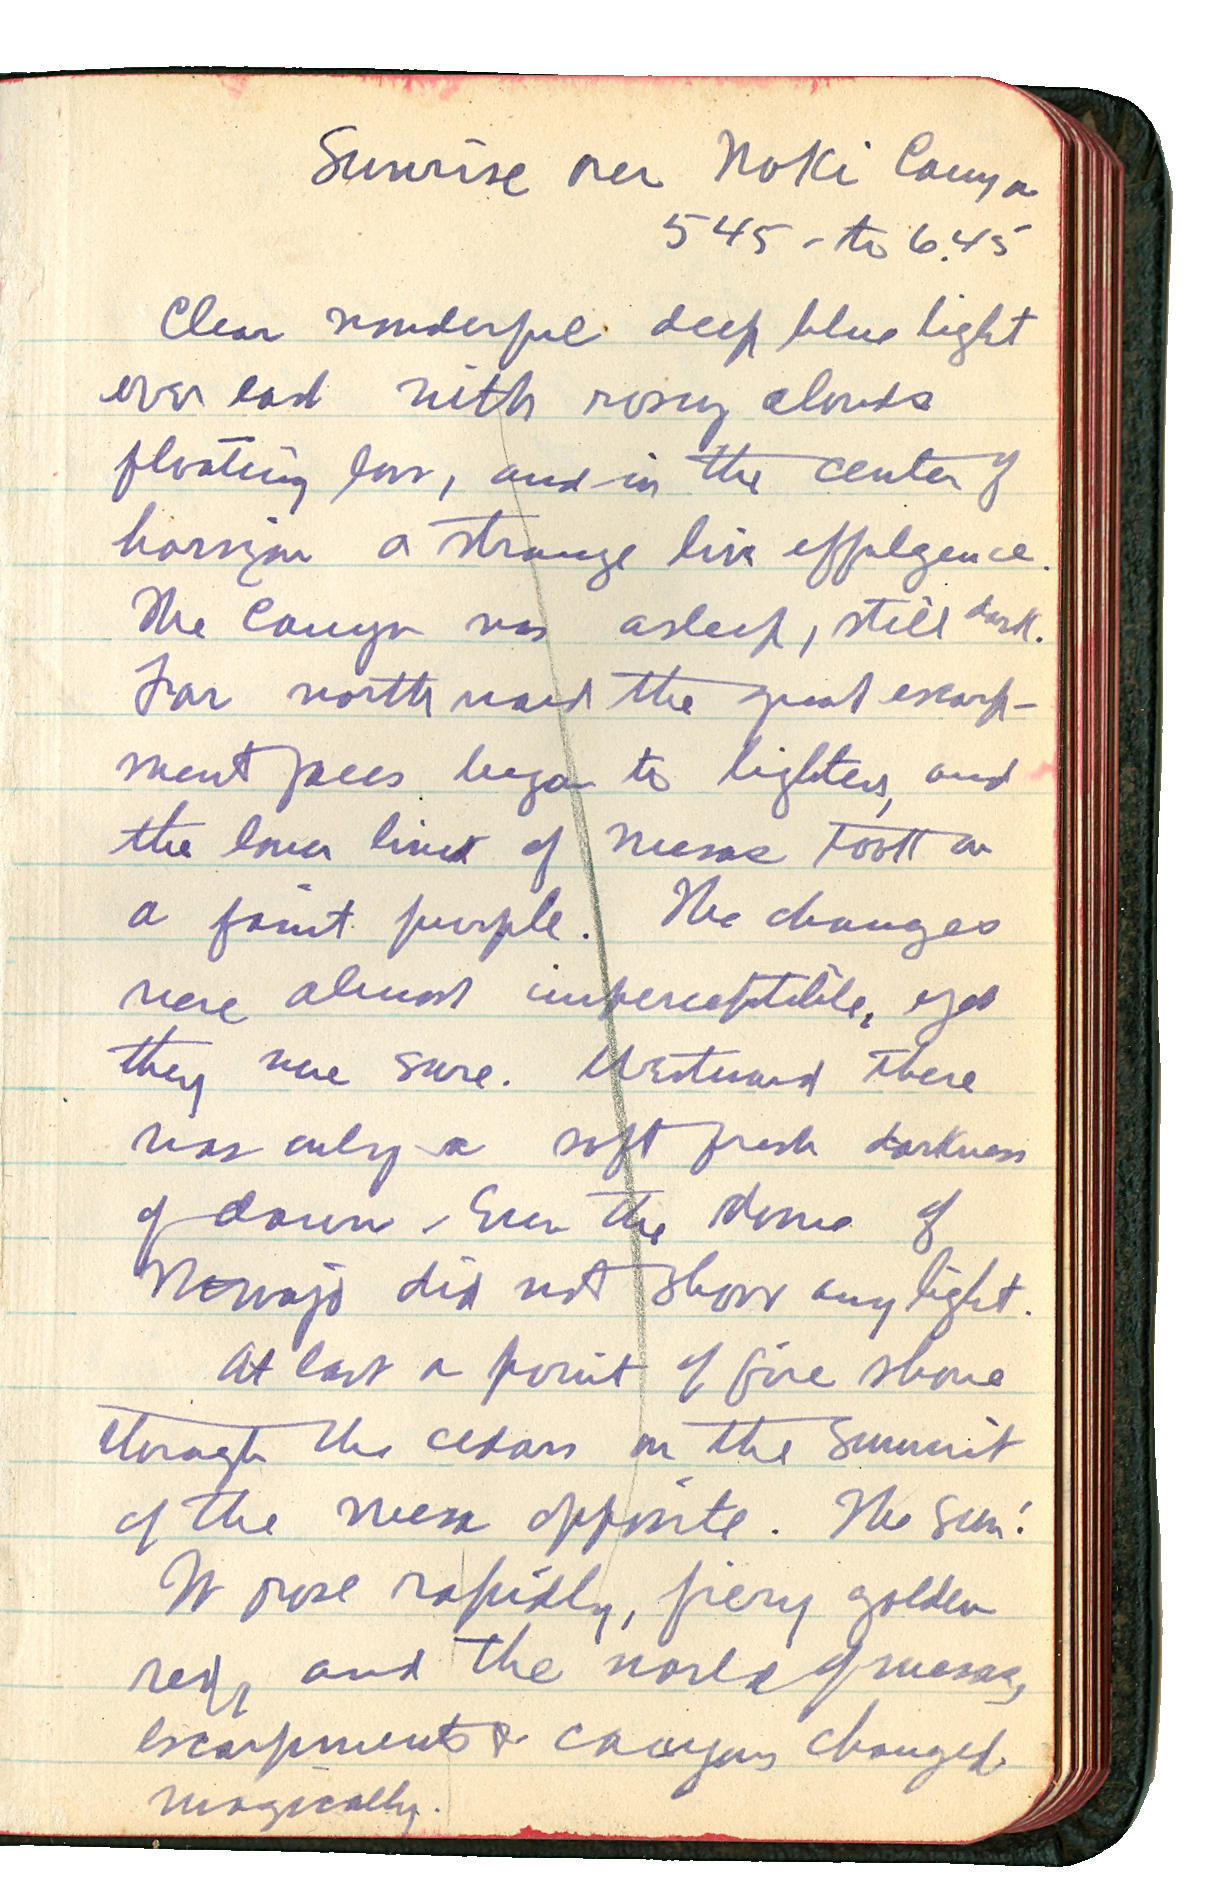 Sunrise over Noki Canyon
545 - to 6.45
Clear wonderful deep blue light
over east with rosy clouds
floating low, and in the center of
horizon a strange live effulgence.
The Canyon was asleep, still dark.
Far northward the great escarp-
ment faces began to lighten, and
the lower lines of mesas took on
a faint purple. The changes
were almost imperceptible, yet
they were sure. Westward there
was only a soft fresh darkness
of dawn. Even the dome of
Navajo did not show any light.
At last a point of fire shone
through the cedars on the summit
of the mesa opposite. The Sun!
It rose rapidly, fiery golden
red, and the world of mesas,
escarpments & canyons changed
magically.